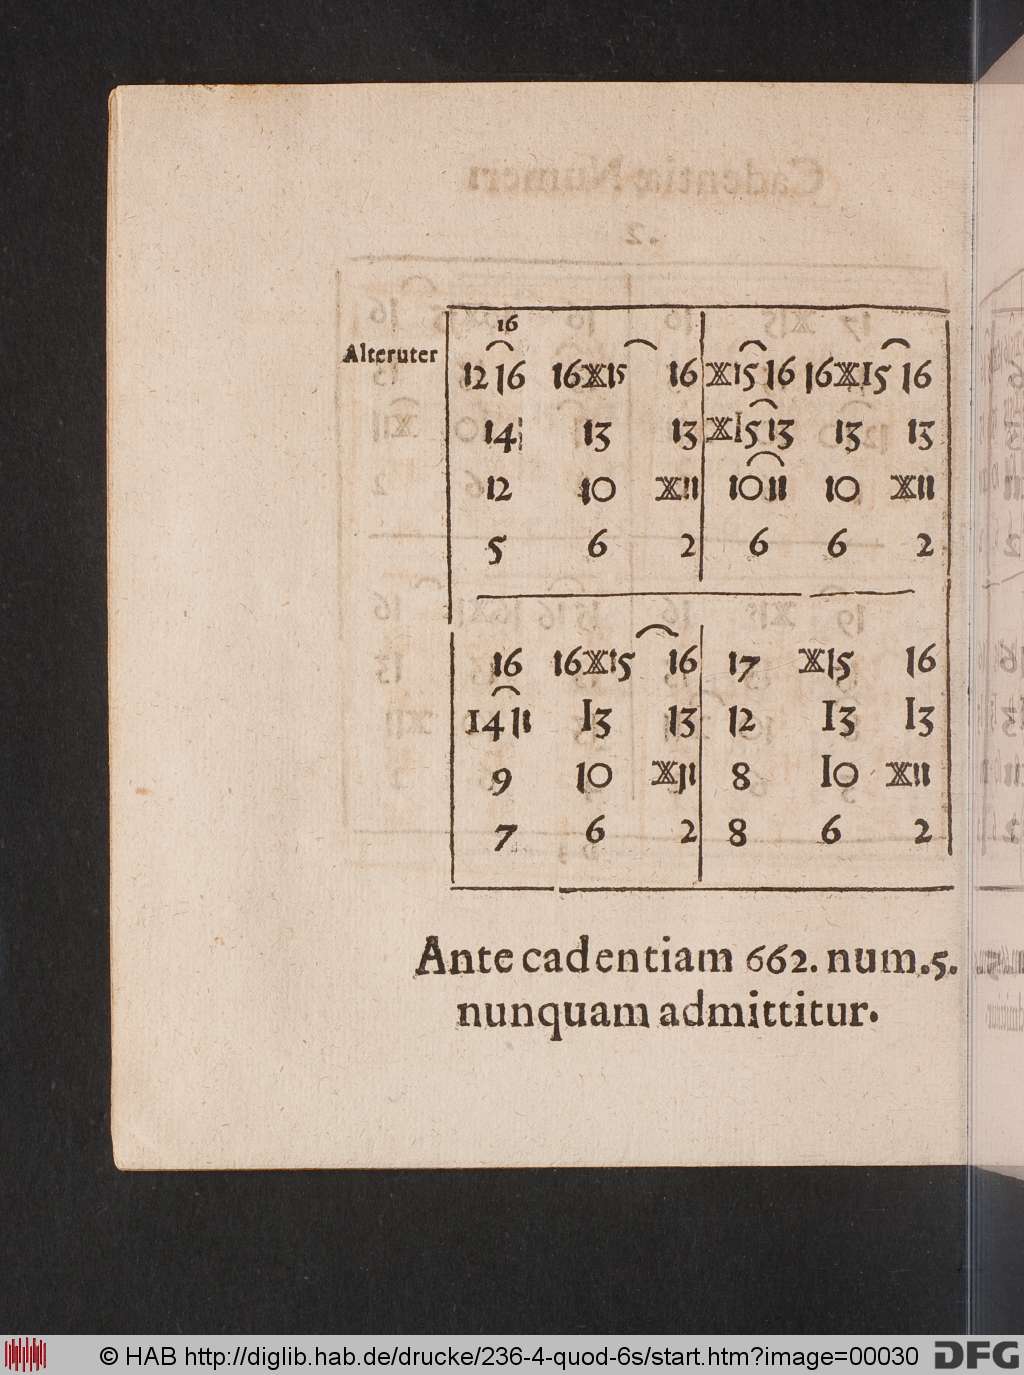 16
Alteruter
12 16 16 X 15 16 X 15 16 16 X 15 16
14 13 13 X 15 13 13 13
12 10 X 11 10 11 10 X 11
5 6 2 6 6 2
16 16 X 15 16 17 X 15 16
14 11 13 13 12 13 13
9 10 X 11 8 10 X 11
7 6 2 8 6 2
Ante cadentiam 662. num. 5.
nunquam admittitur.
© HAB http://diglib.hab.de/drucke/236-4-quod-6s/start.htm?image=00030
DFG